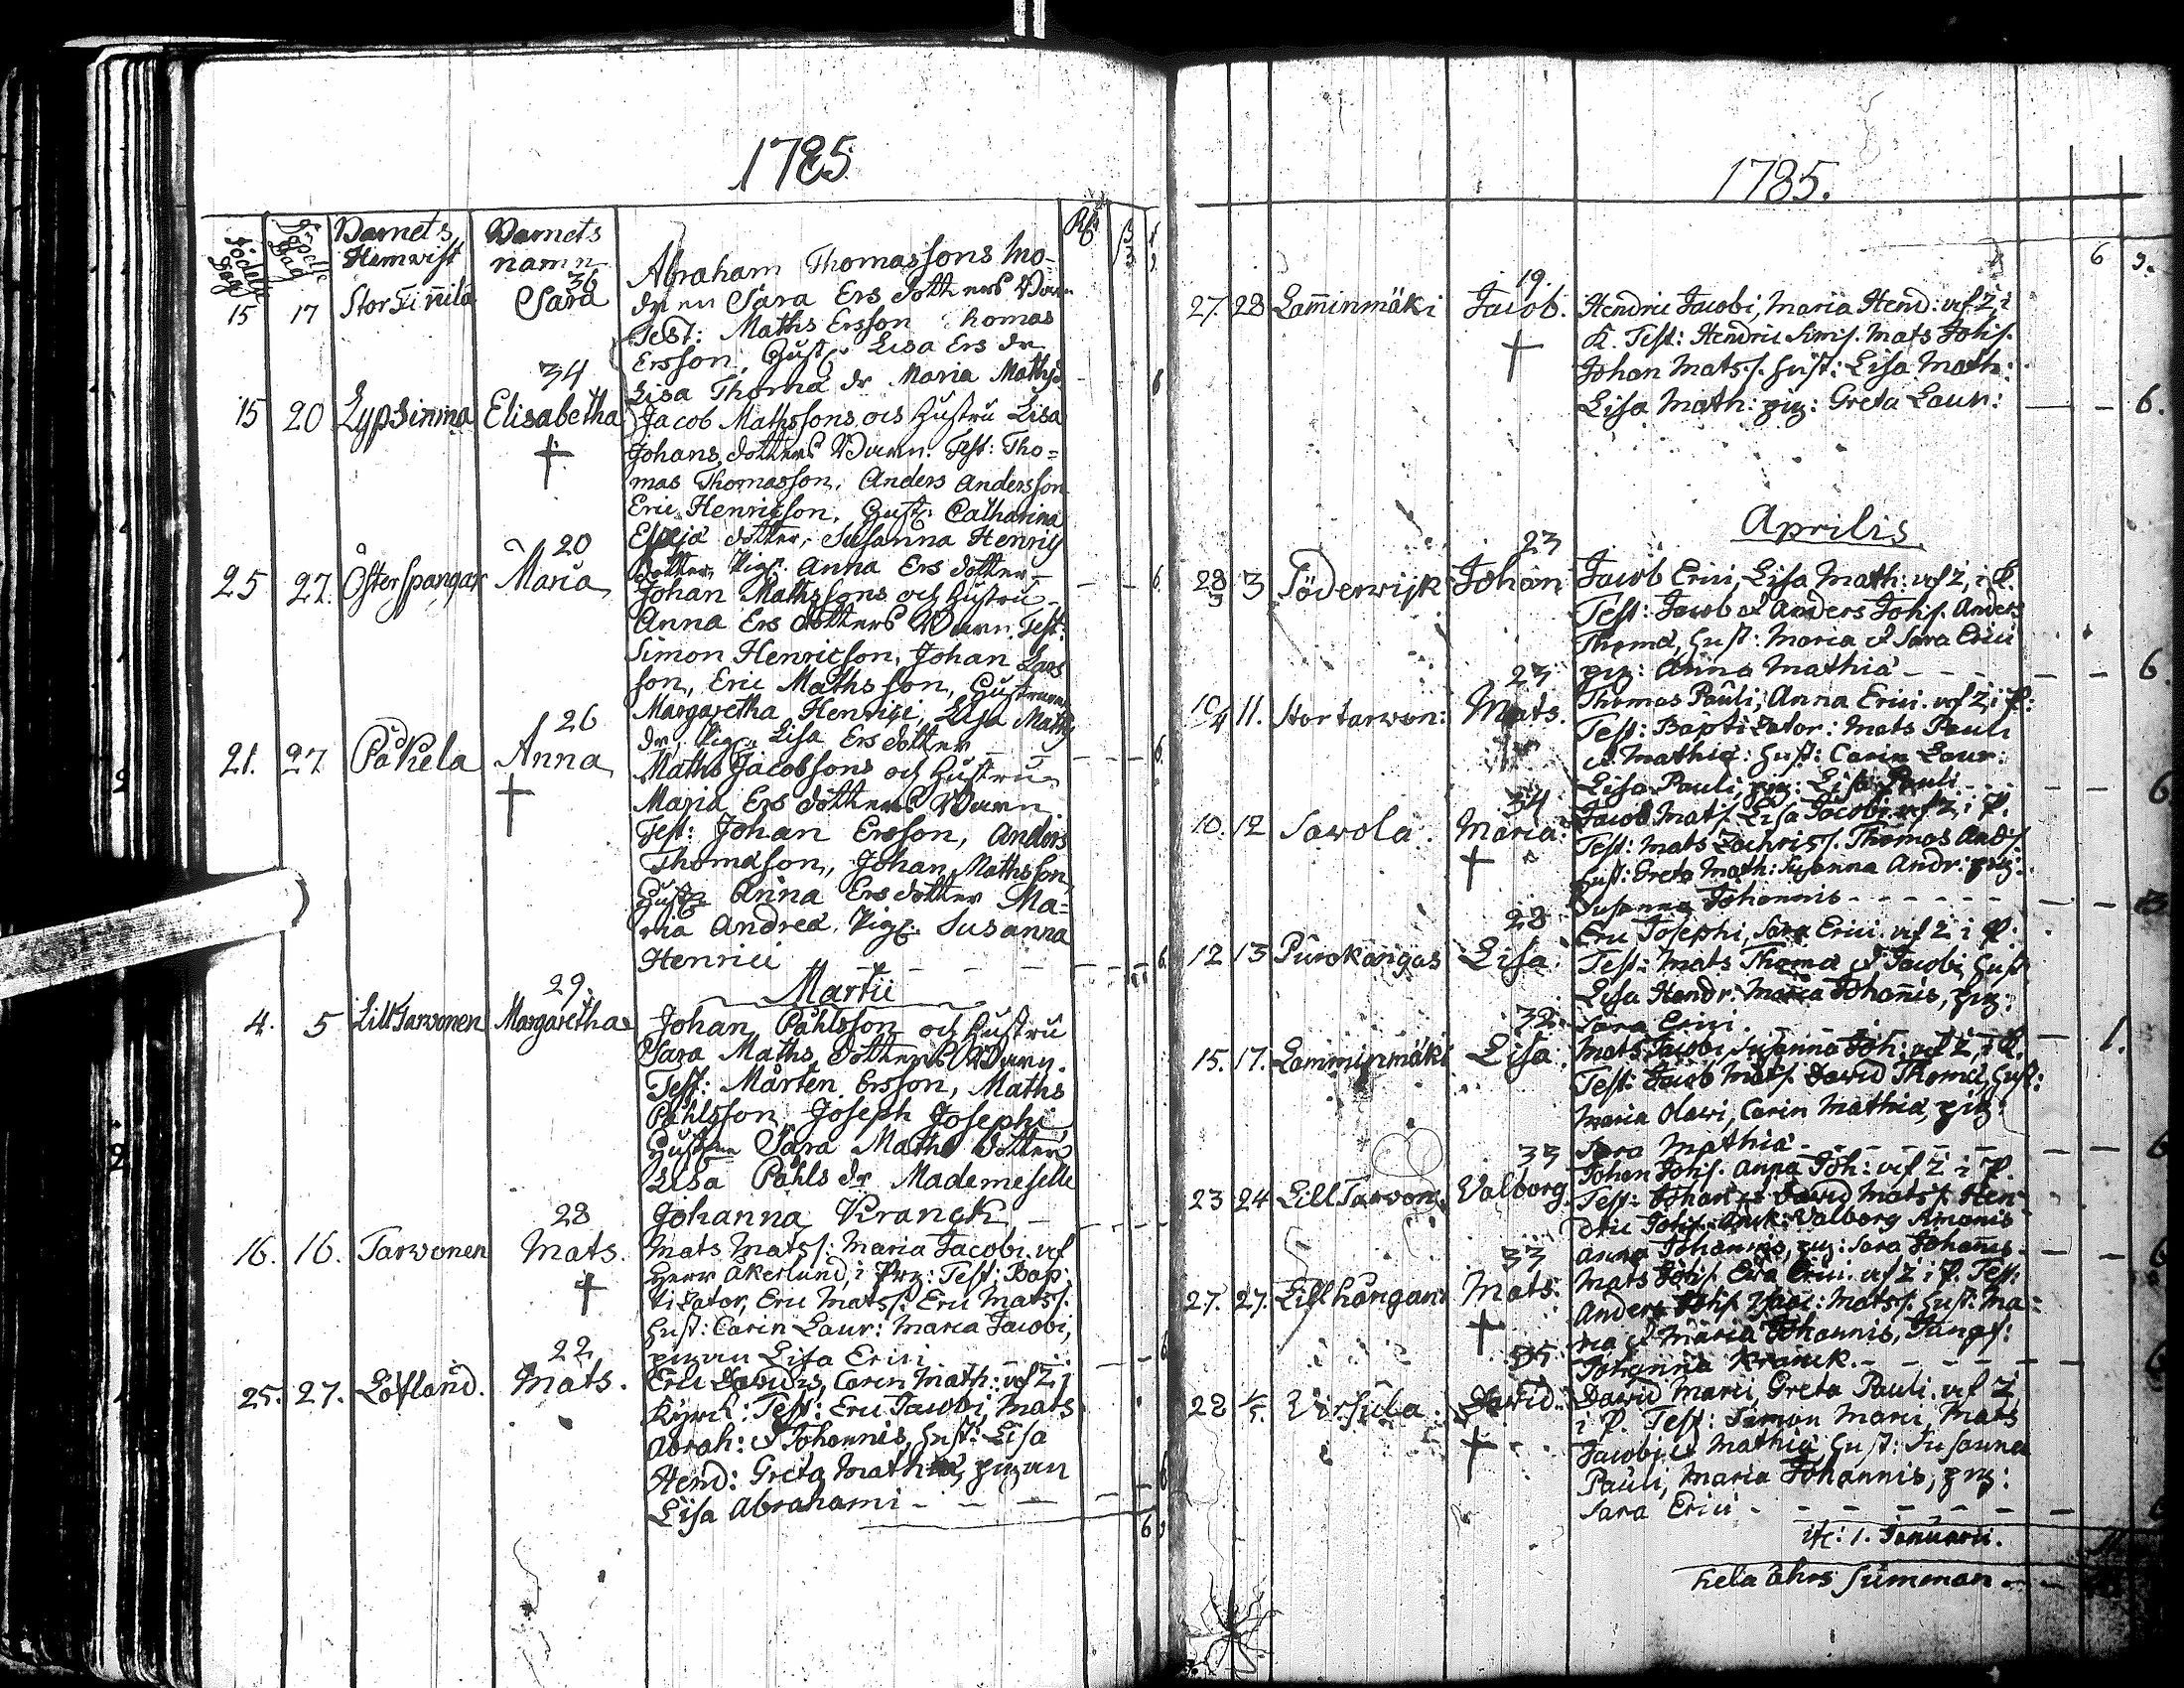 1785
Födelse Dag Döpelse Dag Barnets Hemwist Barnets namn
36
15 17 Stor Finnilä Sara Abraham Thomassons ho-
dren Sara Ers dotters Barn
Test: Maths Ersson Thomas
Ersson, Hust. Lisa Ers dr
Lisa Thomæ dr Maria Maths
34
15 20 Lypsinma Elisabetha Jacob Mathssons och Hustru Lisa
Johans dotters Barn. Test: Tho=
mas Thomasson, Anders Andersson
Eric Henricson, Hustr: Catharina
dotter, Susanna Henrics
dotter, Pig: Anna Ers dotter
20
25 27. Österspangar Maria Johan Mathssons och Hustru
Anna Ers dotters Barn. Test:
Simon Henricson, Johan Lars
son, Eric Mathsson, Hustrurna
Margaretha Henrici, Lisa Maths
dr, Pig: Lisa Ers dotter
26
21. 27 Påkela Anna Maths Jacobsons och Hustru
Maria Ers dotters Barn
Test: Johan Ersson, Anders
Thomasson, Johan Mathsson,
Hustr Anna Ers dotter Ma=
ria Andreæ, Pig: Susanna
Henrici
Martii
29.
4. 5 Lill Tarvonen Margaretha Johan Påhlsson och Hustru
Sara Maths dotters Barn.
Test: Mårten Ersson, Maths
Påhlsson, Joseph Josephi,
Hustrur Sara Maths dotter
Lisa Påhls dr Mademeselle
Johanna Kranck
28
16. 16. Tarvonen Mats. Mats Matss. Maria Jacobi. vef
Herr Åkerlund, i Prg: Test: Bap-
tizator, Eric Matss. Eric Matss.
Hust: Carin Laur: Maria Jacobi,
pigan Lisa Erici
22
25. 27. Löfland. Mats. Eric Davidis, Carin Math: vef Z. i
Kyrck: Test: Eric Jacobi, Mats
Abrah: & Johannis, Hust: Lisa
Hend: Greta Mathiæ, pigan
Lisa Abrahami
1785.
6 9.
19.
27. 28 Lam̄inmäki Jacob. Hendric Jacobi, Maria Hend: vef Z, i
K. Test: Hendric Sims. Mats Johs.
Johan Matss. Hust: Lisa Math:
Lisa Math: pig: Greta Laur: 6.
Aprilis
23
28/3 3 Söderwijk Johan Jacob Erici, Lisa Math: vef Z, i P.
Test: Jacob & Anders Johs. Anders
Thomæ, Hust: Maria & Sara Erici
pig: Anna Mathiæ 6.
23
10/4 11. Stortarwon: Mats. Thomas Pauli, Anna Erici. vef Z, i P:
Test: Baptizator: Mats Pauli
& Mathiæ: Hust: Carin Laur:
Lisa Pauli, pig: Lisa Pauli 6
34
10. 12 Savola. Maria. Jacob Mats. Lisa Jacobi. vef Z i P.
Test: Mats Zachriss. Thomas Ands.
Hust: Greta Math: Susanna Andr: pig:
Susanna Johannis
28
12 13 Purokangas Lisa. Eric Josephi, Sara Erici. vef Z i P.
Test: Mats Thomæ & Jacobi, Hust
Lisa Hendr: Maria Johan̄is, pig:
Sara Erici. 1.
32.
15. 17. Lamminmäki Lisa. Mats Jacobi, Susanna Joh: vef Z, i P.
Test: Jacob Mats. David Thomæ, Hust:
Maria Olavi, Carin Mathiæ, pig:
Sara Mathiæ 6
33
23 24 Lill Tarvon. Valborg. Johan Johs. Anna Joh: vef Z i P.
Test: Johan & David Matss. Hen-
dric Johs. Valborg Simonis
Anna Johannis, pig: Sara Johannis 6
33
27. 27. Lillhångan: Mats. Mats Johs. Ewa Erici. vef Z i P. Test:
Anders Johs. Isac: Matss. Hust: Ma=
ria & Maria Johannis, Jungf:
Johanna Kranck. 6
35
28 1/5. Virsula. David. David Marci, Greta Pauli. vef Z
i P. Test: Simon Marci, Mats
Jacobi & Mathiæ, Hust: Susanna
Pauli, Maria Johannis, pig:
Sara Erici 6
it: 1. Januarii.
hela åhrs Summan